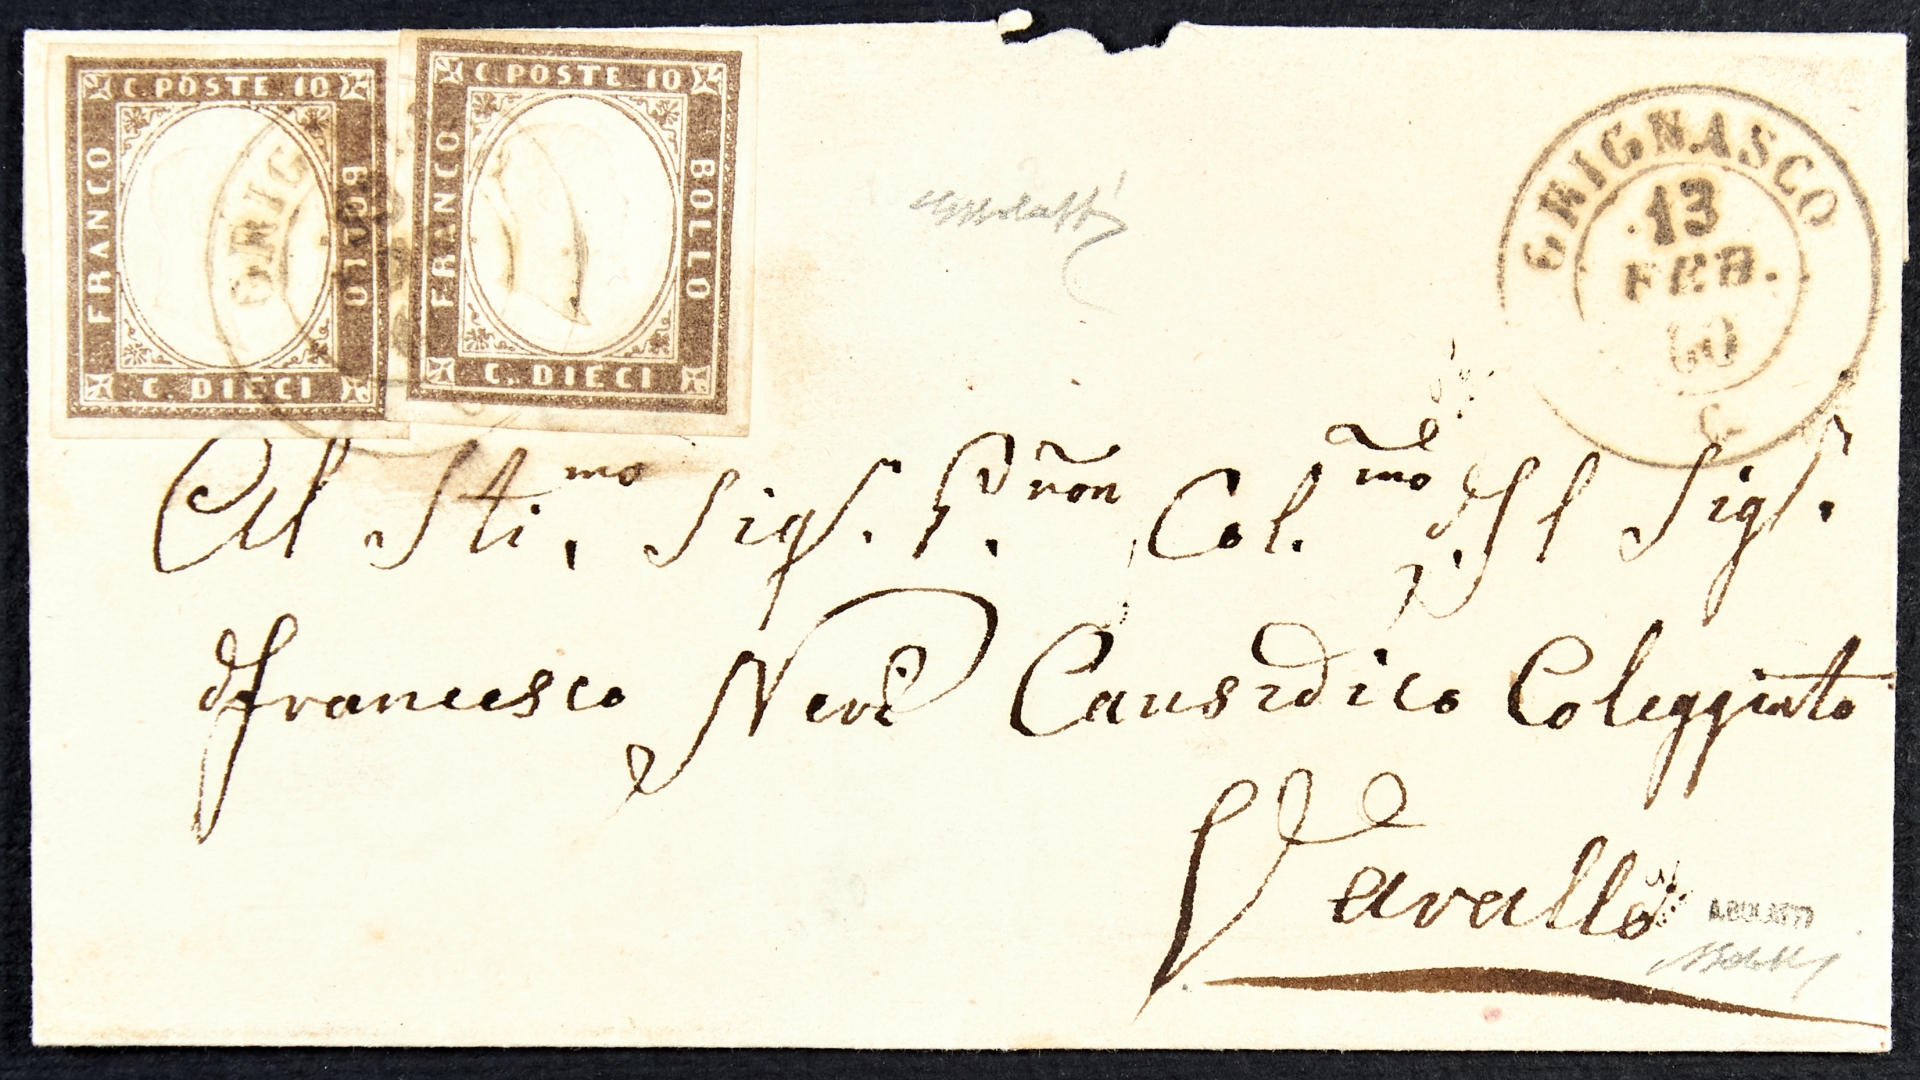 C. POSTE 10
FRANCO
BOLLO
C. DIECI
C. POSTE 10
FRANCO
BOLLO
C. DIECI
GRIG
GRIGNASCO
13
FEB.
60
C.
Al Sti.mo Sig.r P.ñon Col.mo Il Sigr.
Francesco Neri Causidico Coleggiato
Varallo
A.BOLAFFI